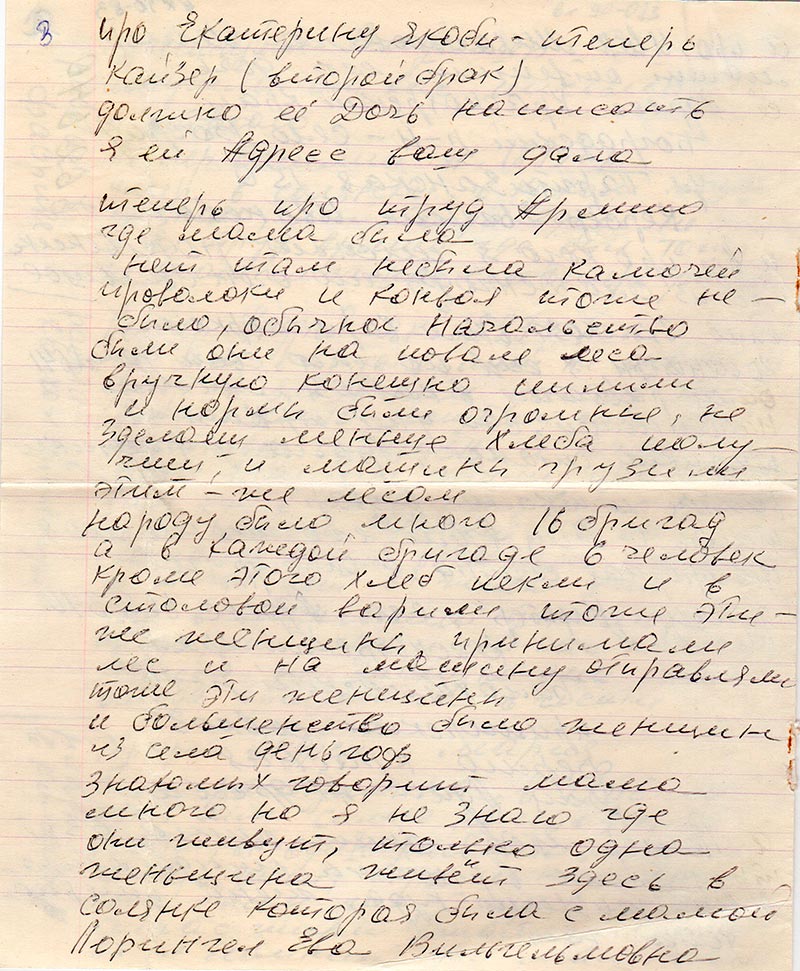 3
про Екатерину Якоби - теперь
Кайзер (второй брак)
должно её Дочь написать
я ей Адресс ваш дала
теперь про труд Армию
где мама была
нет там небыла калючей
проволоки и конвоя тоже не-
было, обычное Начальство
были они на повале леса
вручную конешно пилили
и нормы были огромные, не
зделаеш меньше хлеба полу-
чиш, и машины грузили
этим-же лесом
народу было много 16 бригад
а в каждой бригаде 6 человек
кроме этого хлеб пекли и в
столовой варили тоже эти-
же женщины, принимали
лес и на машину отправляли
тоже эти женщины
и большенство было женщин
из села деньгоф
знакомых говорит мама
много но я не знаю где
они живут, только одна
женьщина живёт здесь в
солянке которая была с мамой
Лорингел Ева Вильгельмовна